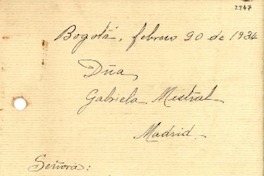 Bogotá, febrero 20 de 1934
Dña,
Gabriela Mistral
Madrid.
Señora: